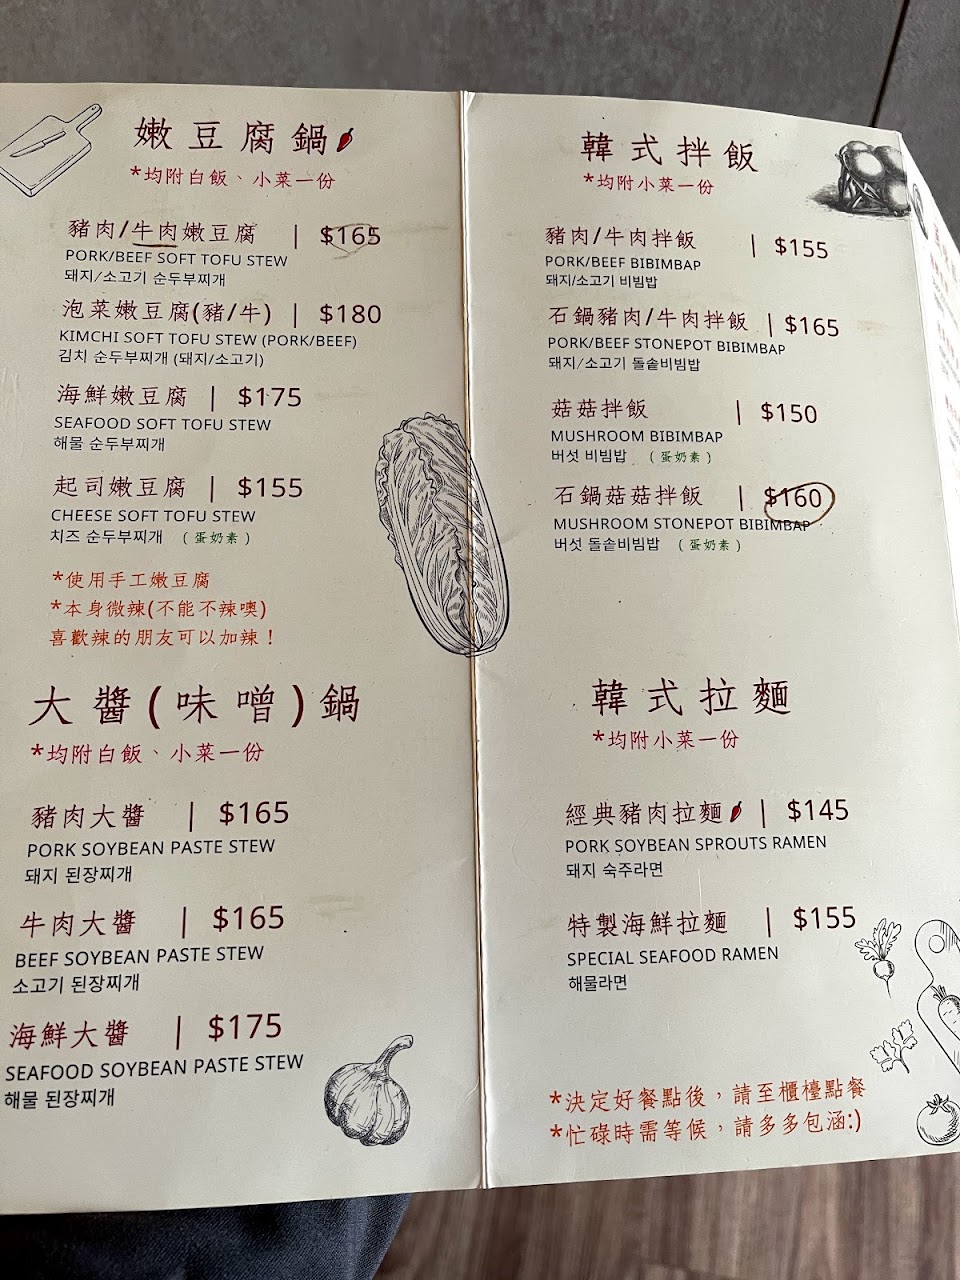 嫩豆腐鍋
*均附白飯、小菜一份
豬肉/牛肉嫩豆腐 | $165
PORK/BEEF SOFT TOFU STEW
돼지/소고기 순두부찌개
泡菜嫩豆腐(豬/牛) | $180
KIMCHI SOFT TOFU STEW (PORK/BEEF)
김치 순두부찌개 (돼지/소고기)
海鮮嫩豆腐 | $175
SEAFOOD SOFT TOFU STEW
해물 순두부찌개
起司嫩豆腐 | $155
CHEESE SOFT TOFU STEW
치즈 순두부찌개 (蛋奶素)
*使用手工嫩豆腐
*本身微辣(不能不辣噢)
喜歡辣的朋友可以加辣！
大醬(味噌)鍋
*均附白飯、小菜一份
豬肉大醬 | $165
PORK SOYBEAN PASTE STEW
돼지 된장찌개
牛肉大醬 | $165
BEEF SOYBEAN PASTE STEW
소고기 된장찌개
海鮮大醬 | $175
SEAFOOD SOYBEAN PASTE STEW
해물 된장찌개
韓式拌飯
*均附小菜一份
豬肉/牛肉拌飯 | $155
PORK/BEEF BIBIMBAP
돼지/소고기 비빔밥
石鍋豬肉/牛肉拌飯 | $165
PORK/BEEF STONEPOT BIBIMBAP
돼지/소고기 돌솥비빔밥
菇菇拌飯 | $150
MUSHROOM BIBIMBAP
버섯 비빔밥 (蛋奶素)
石鍋菇菇拌飯 | $160
MUSHROOM STONEPOT BIBIMBAP
버섯 돌솥비빔밥 (蛋奶素)
韓式拉麵
*均附小菜一份
經典豬肉拉麵 | $145
PORK SOYBEAN SPROUTS RAMEN
돼지 숙주라면
特製海鮮拉麵 | $155
SPECIAL SEAFOOD RAMEN
해물라면
*決定好餐點後，請至櫃檯點餐
*忙碌時需等候，請多多包涵:)